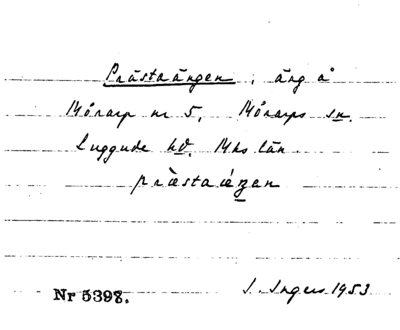 Prästaängen, äng å
Mörarp nr 5, Mörarps sn.
Luggude hd. Mhs län.
præ̀staǽŋen
Nr 5398.
I. Ingers 1953